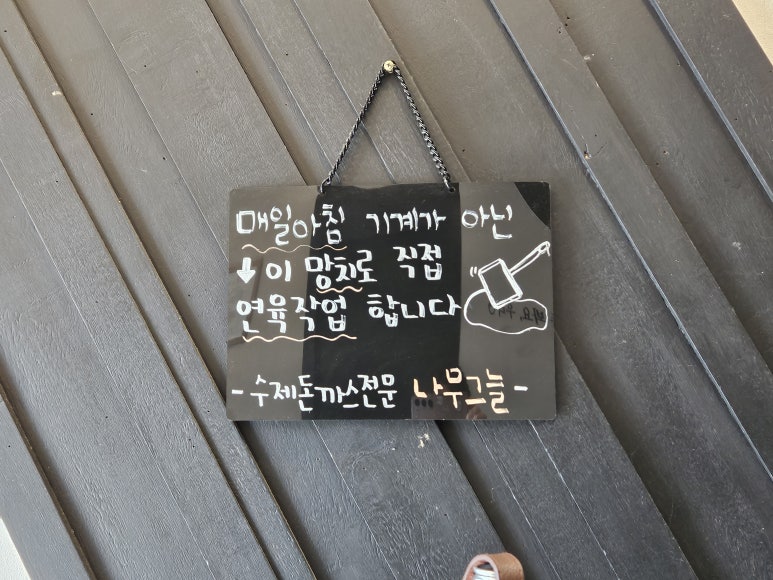 매일아침 기계가 아닌
↓이 망치로 직접
연육작업 합니다
-수제돈까스전문 나무그늘-